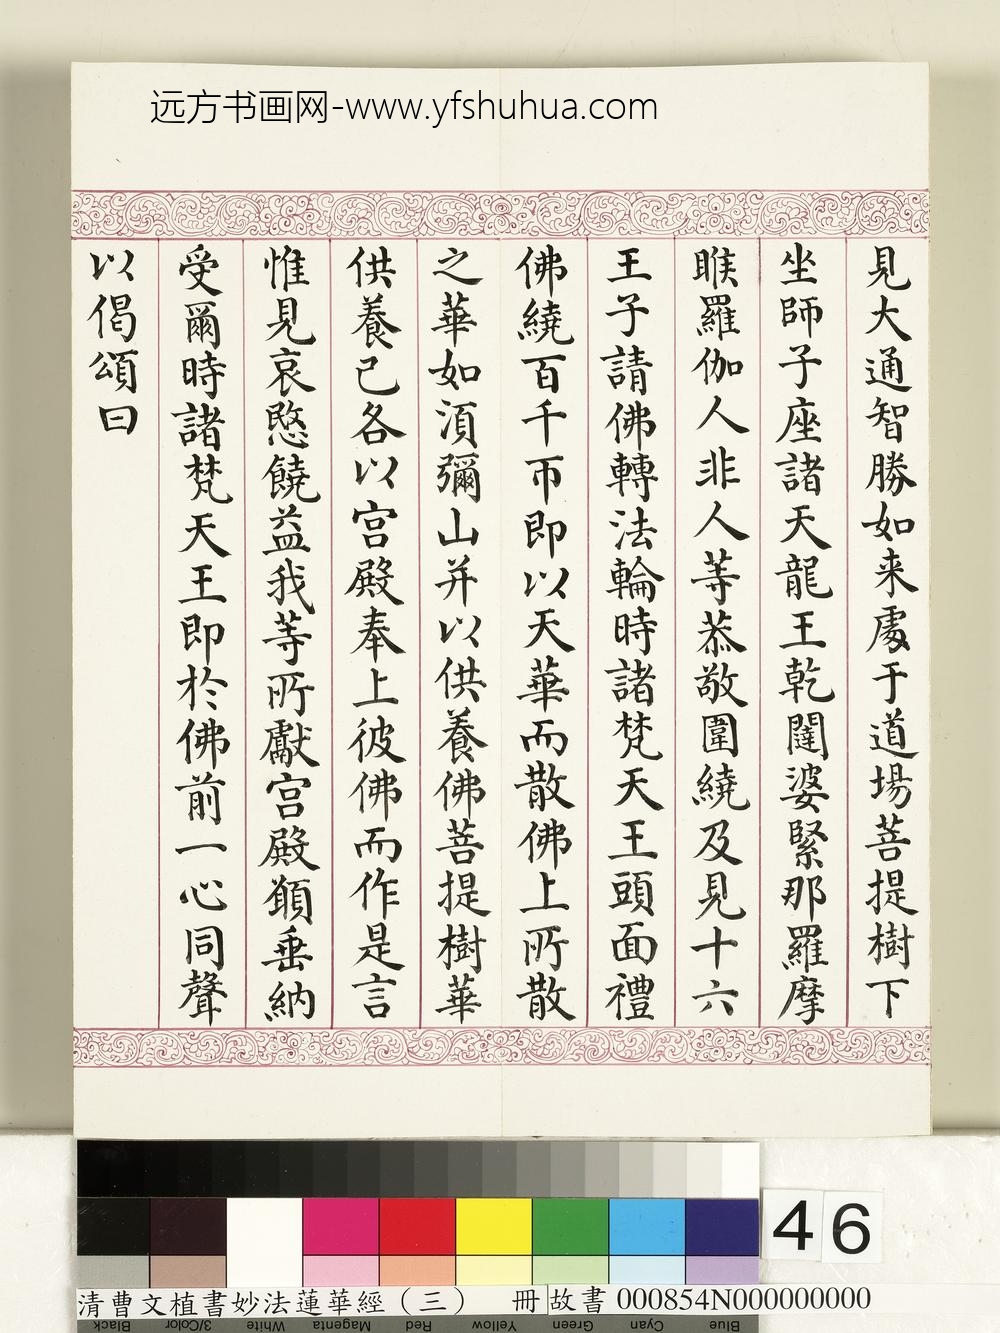 远方书画网-www.yfshuhua.com
見大通智勝如来處于道場菩提樹下
坐師子座諸天龍王乾闥婆緊那羅摩
睺羅伽人非人等恭敬圍繞及見十六
王子請佛轉法輪時諸梵天王頭面禮
佛繞百千帀即以天華而散佛上所散
之華如湏彌山并以供養佛菩提樹華
供養已各以宫殿奉上彼佛而作是言
惟見哀愍饒益我等所獻宫殿願垂納
受爾時諸梵天王即於佛前一心同聲
以偈頌曰
46
清曹文植書妙法蓮華經（三） 冊 故書 000854N000000000
Black 3/Color White Magenta Red Yellow Green Cyan Blue